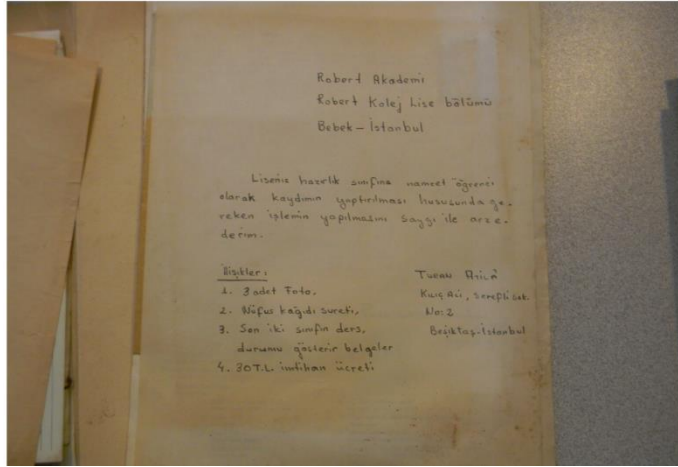 Robert Akademi
Robert Kolej Lise bölümü
Bebek - İstanbul
Lisenin hazırlık sınıfına namzet öğrenci
olarak kaydımın yaptırılması hususunda ge-
reken işlemin yapılmasını saygı ile arze-
derim.
İlişikler:
1. 3 adet Foto.
2. Nüfus kağıdı sureti,
3. Son iki sınıfın ders,
durumu gösterir belgeler
4. 30 T.L. imtihan ücreti
Turan
Kılıç Ali, Şerefli sok.
No: 2
Beşiktaş-İstanbul